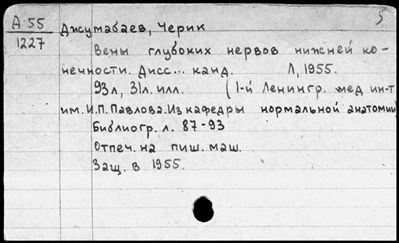 А 55 Джумабаев, Черик 5
1227
Вены глубоких нервов нижней ко-
нечности. Дисс... канд. Л, 1955.
93л, 31л. илл. (1-й Ленингр. мед ин-т
им. И.П. Павлова. Из кафедры нормальной анатомии)
Библиогр. л. 87-93
Отпеч. на пиш. маш.
Защ. в 1955.